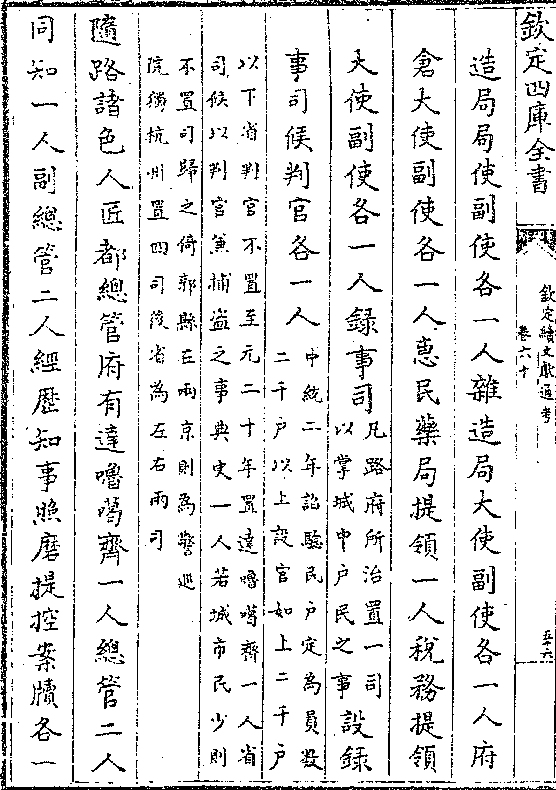 欽定四庫全書
欽定續文獻通考
卷六十
造局局使副使各一人雜造局大使副使各一人府
倉大使副使各一人惠民藥局提領一人稅務提領
大使副使各一人錄事司
凡路府所治置一司
以掌城中戶民之事
設錄
事司候判官各一人
中統二年詔驗民戶定為員數
二千戶以上設官如上二千戶
以下省判官不置至元二十年置達嚕噶齊一人省
司候以判官兼捕盜之事典史一人若城市民少則
不置司歸之倚郭縣在兩京則為警巡
院獨杭州置四司後省為左右兩司
隨路諸色人匠都總管府有達嚕噶齊一人總管二人
同知一人副總管二人經歷知事照磨提控案牘各一